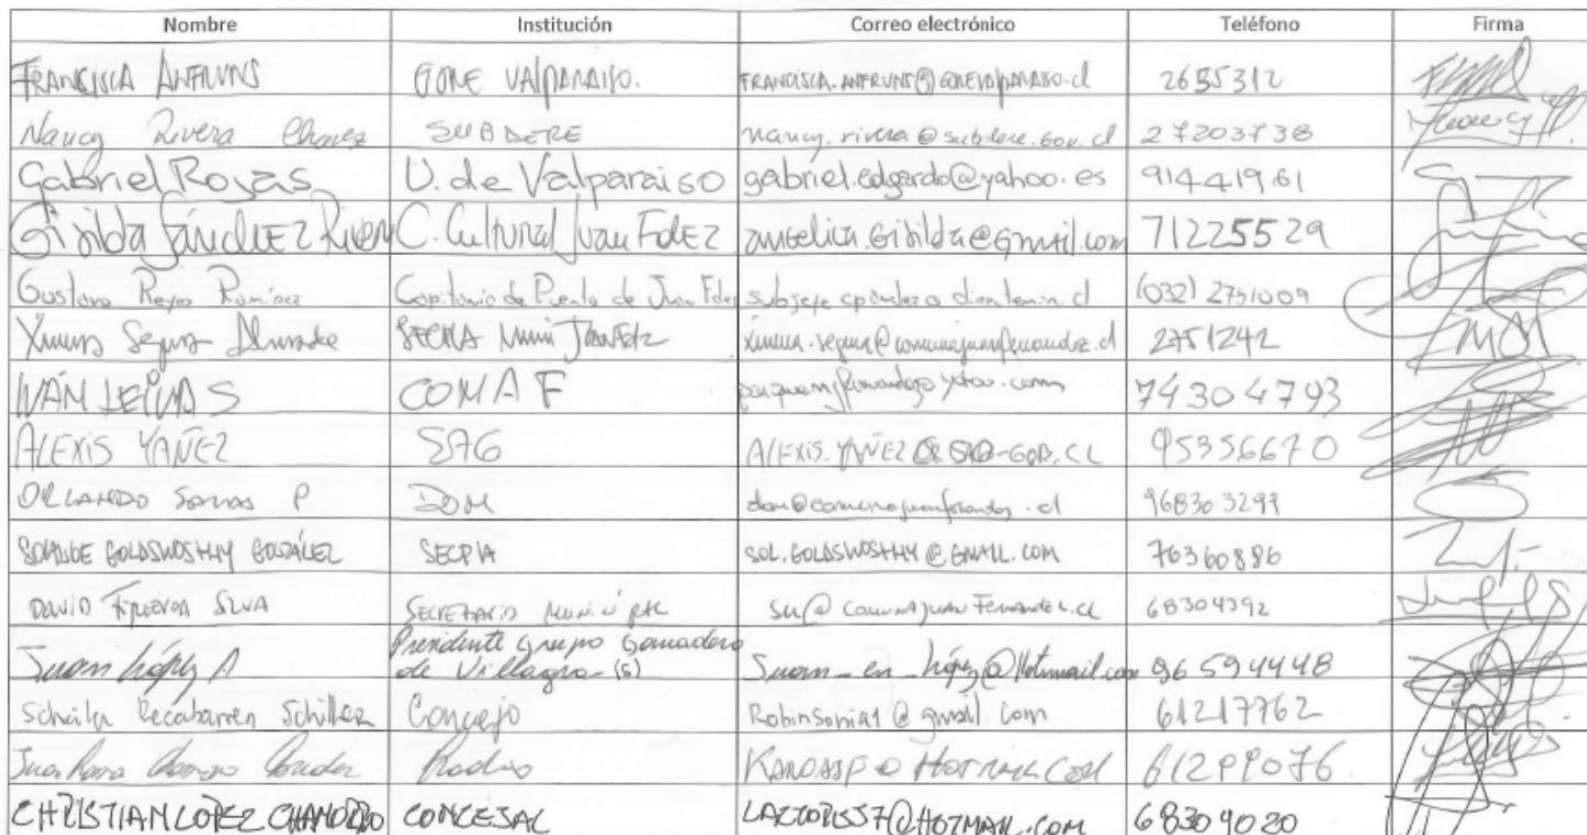 Nombre Institución Correo electrónico Teléfono Firma
FRANCISCA ANFRUNS GORE VALPARAISO. FRANCISCA.ANFRUNS@GOREVALPARAISO.cl 2655312
Nancy Rivera Chavez SUBDERE nancy.rivera@subdere.gov.cl 27203738
Gabriel Rojas U. de Valparaiso gabriel.edgardo@yahoo.es 91441961
Gisilda Sánchez River C. Cultural Juan Fdez angelica.gisilda@gmail.com 71225529
Gustavo Reyes Ramirez Capitanía de Puerto de Juan Fdez (032) 2751009
Ximena Segura SECPLA Muni Juan Fdz ximena.segura@comunajuanfernandez.cl 2751242
IVÁN LEIVA S CONAF 74304793
ALEXIS YAÑEZ SAG ALEXIS.YAÑEZ 95356670
ORLANDO P DOM dom@comunajuanfernandez.cl 968303299
SOLANGE GOLDSWOSTHY GONZÁLEZ SECPLA SOL.GOLDSWOSTHY@GMAIL.COM 76360886
DAVID FIGUEROA SILVA SECRETARIO MUNICIPAL comunaJuanFernandez.cl 68304392
Juan López A Presidente Grupo Ganadero de Villagra (S) Juan_en_López@Hotmail.com 96594448
Scheila Recabarren Schiller Concejo Robinsonia1@gmail.com 61217762
Radio HOTMAIL.COM 61299076
CHRISTIAN LOPEZ CHAMORRO CONCEJAL @HOTMAIL.COM 68309020